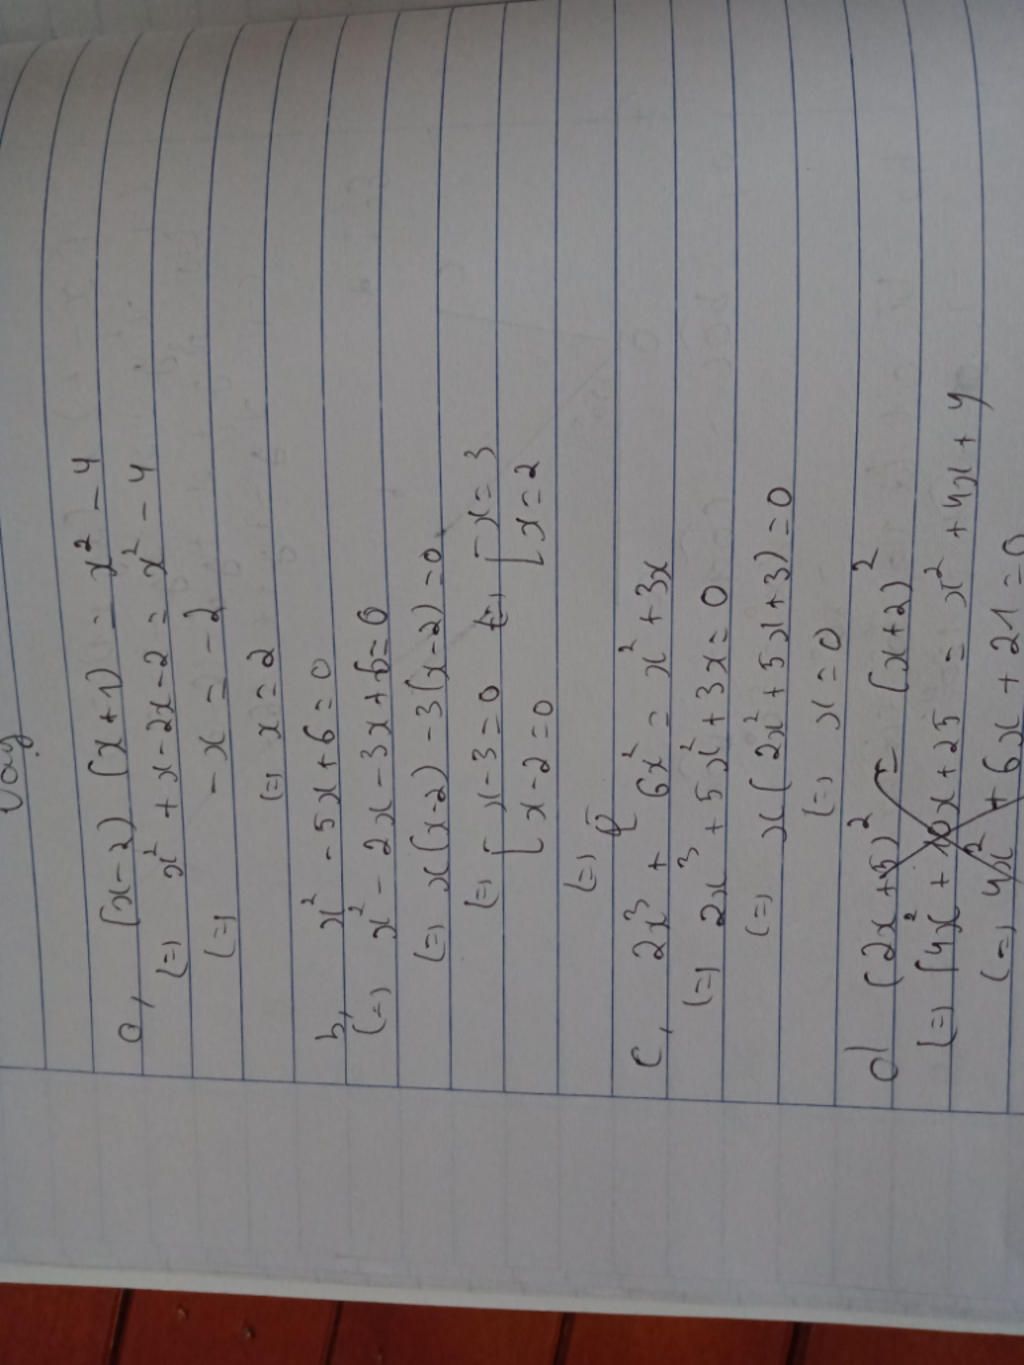 Vậy
a, (x-2) (x+1) = x² - 4
(=) x² + x - 2x - 2 = x² - 4
(=) - x = - 2
(=) x = 2
b, x² - 5x + 6 = 0
(=) x² - 2x - 3x + 6 = 0
(=) x(x-2) - 3(x-2) = 0
(=) [ x - 3 = 0 (=) [ x = 3
[ x - 2 = 0 [ x = 2
(=)
c, 2x³ + 6x² = x² + 3x
(=) 2x³ + 5x² + 3x = 0
(=) x ( 2x² + 5x + 3) = 0
(=) x = 0
d) (2x + 5)² = (x+2)²
(=) (4x² + 10x + 25 = x² + 4x + 4
(=) 4x² + 6x + 21 = 0